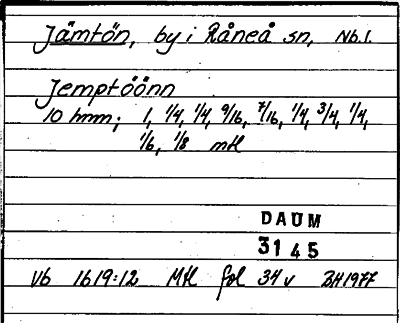 Jämtön, by i Råneå sn, Nb.l.
Jemptöönn
10 hmm; 1, 1/4, 1/4, 9/16, 7/16, 1/4, 3/4, 1/4,
1/6, 1/8 mtl
DAUM
3145
Vb 1619:12 Mtl fol 34v BH1977